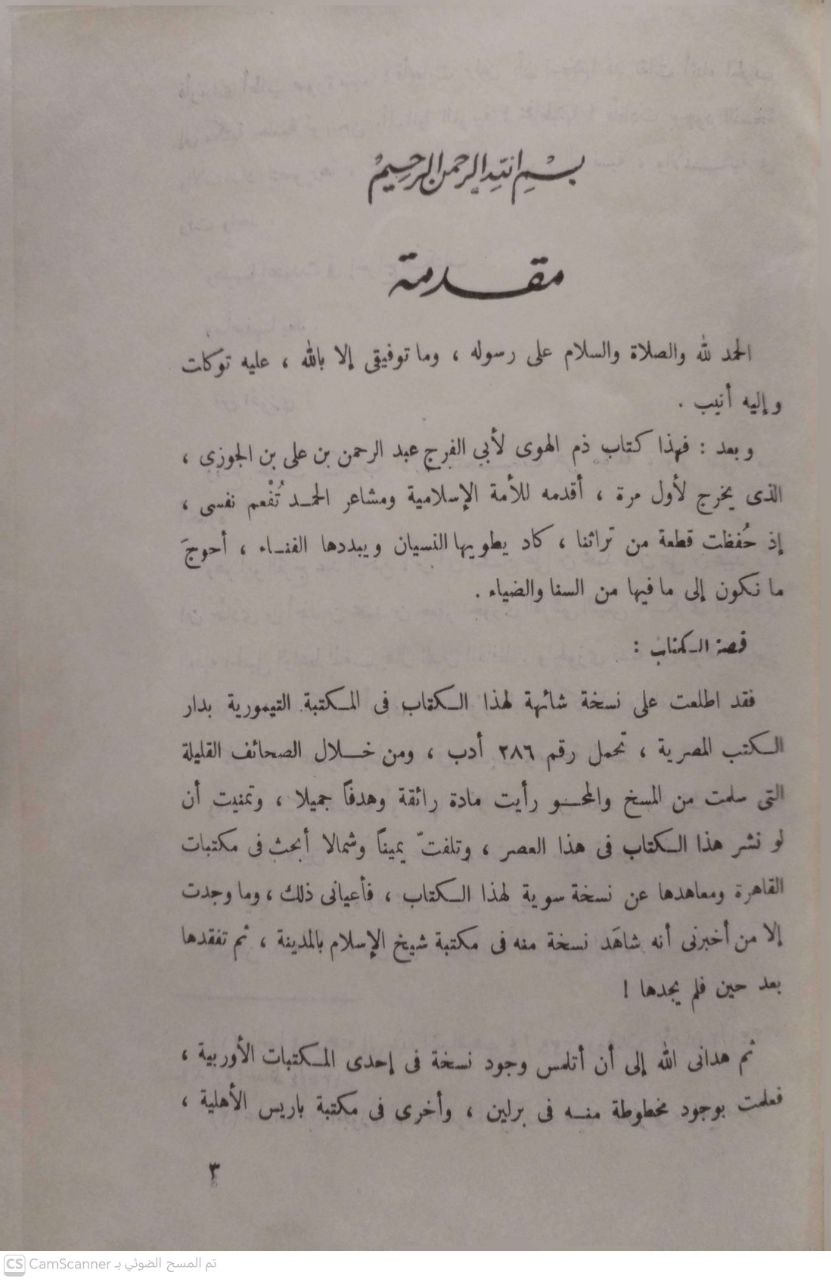 بسم الله الرحمن الرحيم
مقدمة
الحمد لله والصلاة والسلام على رسوله ، وما توفيقى إلا بالله ، عليه توكلت
وإليه أنيب .
وبعد : فهذا كتاب ذم الهوى لأبي الفرج عبد الرحمن بن على بن الجوزى ،
الذى يخرج لأول مرة ، أقدمه للأمة الإسلامية ومشاعر الحمد تُفْعم نفسى ،
إذ حُفظت قطعة من تراثنا ، كاد يطويها النسيان ويبددها الفناء ، أحوجَ
ما نكون إلى ما فيها من السنا والضياء .
قصة الكتاب :
فقد اطلعت على نسخة شائهة لهذا الكتاب فى المكتبة التيمورية بدار
الكتب المصرية ، تحمل رقم ٢٨٦ أدب ، ومن خلال الصحائف القليلة
التى سلمت من المسخ والمحو رأيت مادة رائقة وهدفاً جميلا ، وتمنيت أن
لو نشر هذا الكتاب فى هذا العصر ، وتلفتّ يميناً وشمالا أبحث فى مكتبات
القاهرة ومعاهدها عن نسخة سوية لهذا الكتاب ، فأعيانى ذلك ، وما وجدت
إلا من أخبرنى أنه شاهَد نسخة منه فى مكتبة شيخ الإسلام بالمدينة ، ثم تفقدها
بعد حين فلم يجدها !
ثم هدانى الله إلى أن أتلمس وجود نسخة فى إحدى المكتبات الأوربية ،
فعلمت بوجود مخطوطة منه فى برلين ، وأخرى فى مكتبة باريس الأهلية ،
٣
CS CamScanner تم المسح الضوئي بـ